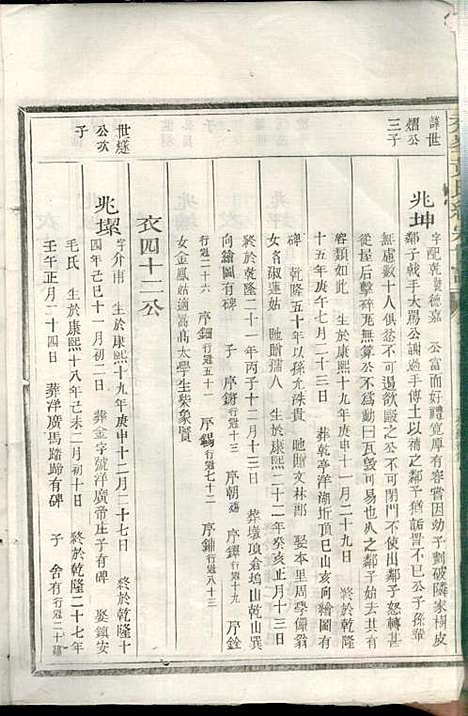 諱世
熠公
三子
兆坤
字配乾號德嘉 公富而好禮寬厚有容嘗因幼子劃破隣家桐皮
鄰子戟手大罵公謝過手博土以補之鄰子猶詬詈不已公子孫輩
無慮數十人俱忿不可遏欲毆之公不可閉門不使出鄰子怒轉甚
從垣后擊碎瓦無算公不爲動曰瓦毀可易也从此鄰子始去其有
容類如此 生於康熙十九年庚申十一月二十九日 終於乾隆
十五年庚午七月二十三日 葬乾亭洋湖圻頂巳山亥向繪圖有
碑 乾隆五十年以孫光洙貴 馳贈文林郎 娶本里周學備翁
女名淑蓮姑 馳贈孺人 生於康熙二十二年癸亥正月十三日
終於乾隆二十一年丙子十二月十三日 葬壞頂倉塢山乾山巽
向繪圖有碑 子 序鏘行冠十三 序朝 序鐸行冠十九 序銓
行冠二十六 序鈿行冠五十一 序錫行冠七十二 序鋪行冠八十三
女金鳳姑適 太學生柴象賢
衣四十二公
世燧
公次
子
兆壜
字介甫 生於康熙十九年庚申十二月二十七日 終於乾隆十
四年己巳十一月初二日 葬金字號洋廣帝庄子有碑 娶鎮安
毛氏 生於康熙十八年己未二月初十日 終於乾隆二十七年
壬午正月二十四日 葬洋廣馬踏蹄有碑 子 舍有行冠二十